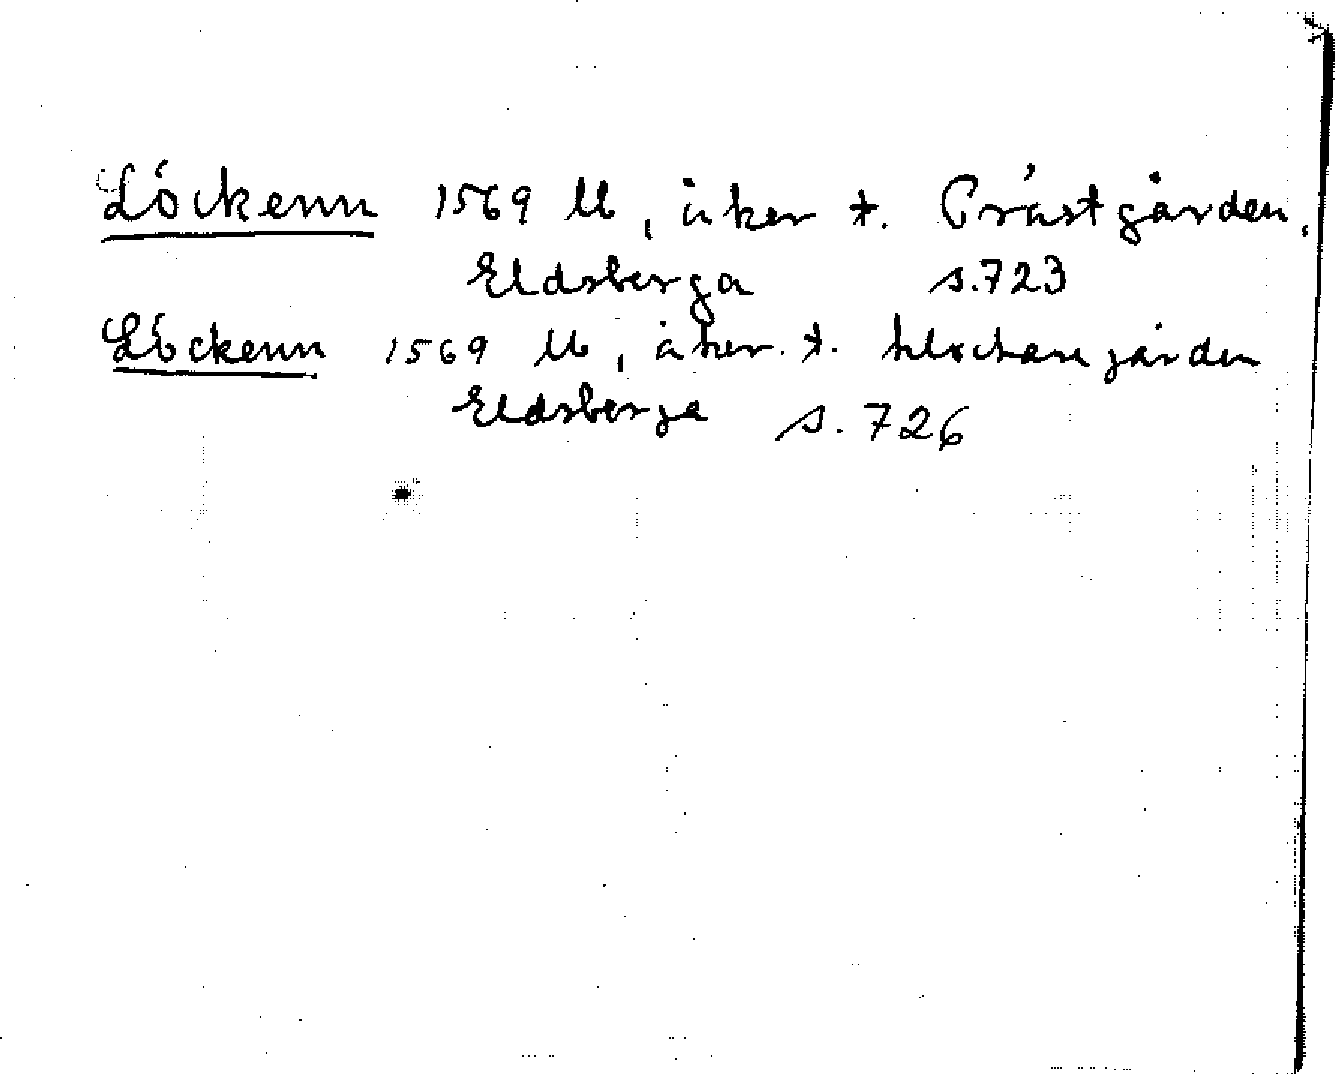 Löckenn 1569 M, åker t. Prästgården,
Eldsberga s. 723
Löckenn 1569 M, åker t. klockaregården
Eldsberga s. 726